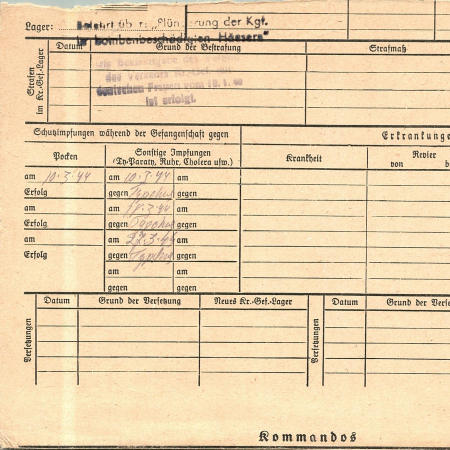 Lager: Belehrt über "Plünderung der Kgt.
in bombenbeschädigten Häusern"
Strafen im Kr.-Gef.-Lager
Datum Grund der Bestrafung Strafmaß
des Verkehrs mit
deutschen Frauen vom 10.1.40
ist erfolgt.
Schutzimpfungen während der Gefangenschaft gegen Erkrankunge
Pocken Sonstige Impfungen (Ty-Paraty, Ruhr, Cholera usw.) Krankheit Revier
von b
am 10.3.44 am 10.3.44 am
Erfolg gegen Typhus gegen
am am 17.3.44 am
Erfolg gegen Typhus gegen
am am 27.3.44 am
Erfolg gegen Typhus gegen
am am
gegen gegen
Versetzungen
Datum Grund der Versetzung Neues Kr.-Gef.-Lager
Versetzungen
Datum Grund der Verse
Kommandos